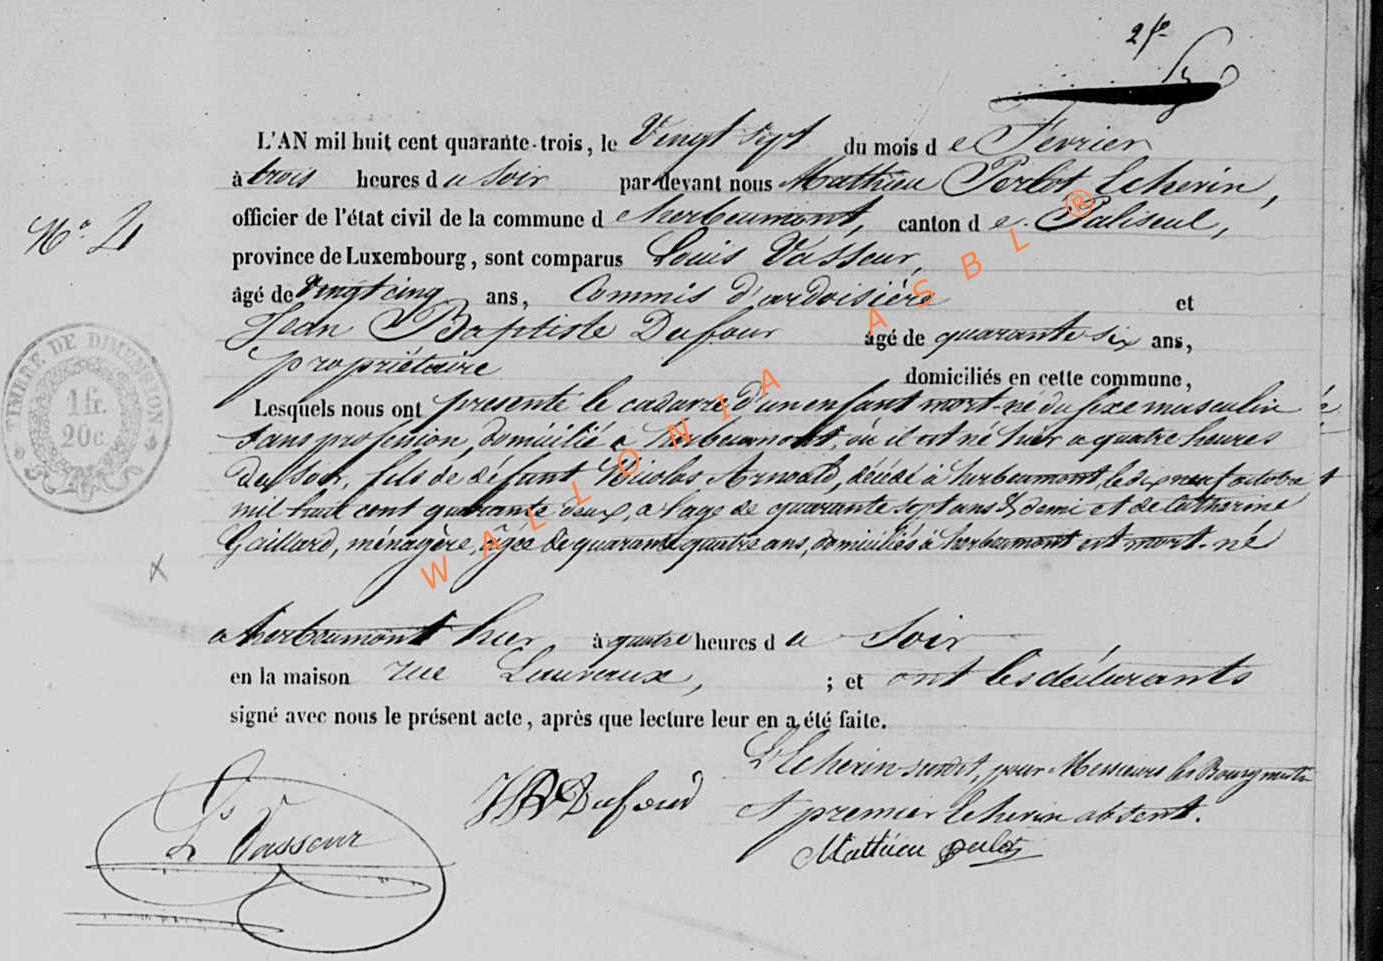 2 fo
L'AN mil huit cent quarante-trois, le Vingt sept du mois de Fevrier
à trois heures du soir par-devant nous Mathieu Perlot Echevin,
officier de l'état civil de la commune d herbeumont, canton de Paliseul,
No. 4
province de Luxembourg, sont comparus Louis Vasseur,
âgé de Vingt cinq ans, Commis d'ardoisière et
Jean Baptiste Dufour âgé de quarante six ans,
propriétaire domiciliés en cette commune,
TIMBRE DE DIMENSION
1 fr.
20c.
Lesquels nous ont présenté le cadavre d'un enfant mort-né du sexe masculin
sans profession, domicilié à herbeumont, où il est né hier a quatre heures
du soir, fils de défunt Nicolas Arnould, décédé à herbeumont, le dix neuf octobre
mil huit cent quarante deux, a l'age de quarante sept ans & demi et de Catherine
Gaillard, ménagère, âgée de quarante quatre ans, domiciliés à herbeumont est mort-né
a herbeumont hier à quatre heures du Soir
en la maison rue Lauveaux, ; et ont les déclarants
signé avec nous le présent acte, après que lecture leur en a été faite.
L'Echevin susdit, pour Messieurs les Bourgmestre
et premier Echevin absent.
Ls Vasseur
JB Dufour
Mathieu Perlot
WALLONIA ASBL ®